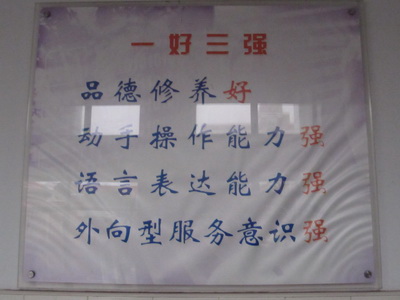 一好三强
品德修养好
动手操作能力强
语言表达能力强
外向型服务意识强